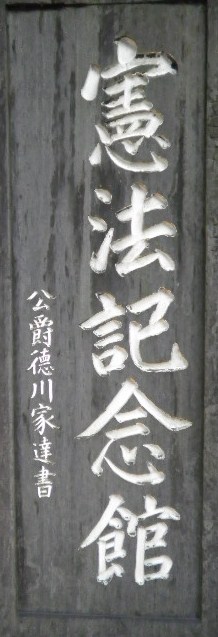 憲法記念館
公爵德川家達書